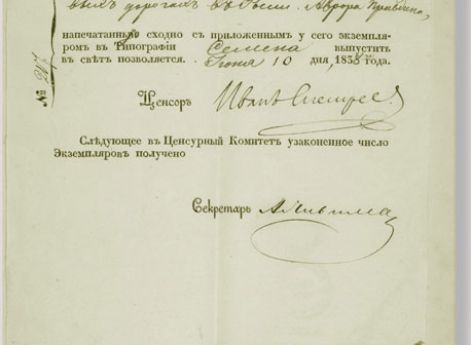 выхъ дорогахъ въ Росіи. Аврора Правдина,
напечатанную сходно съ приложеннымъ у сего экземпля-
ромъ въ Типографіи Семена выпустить
въ свѣтъ позволяется. 10 дня, 1838 года.
№ 217
Ценсоръ Иванъ Снегирев.
Слѣдующее въ Ценсурный Комитетъ узаконенное число
Экземпляровъ получено
Секретарь